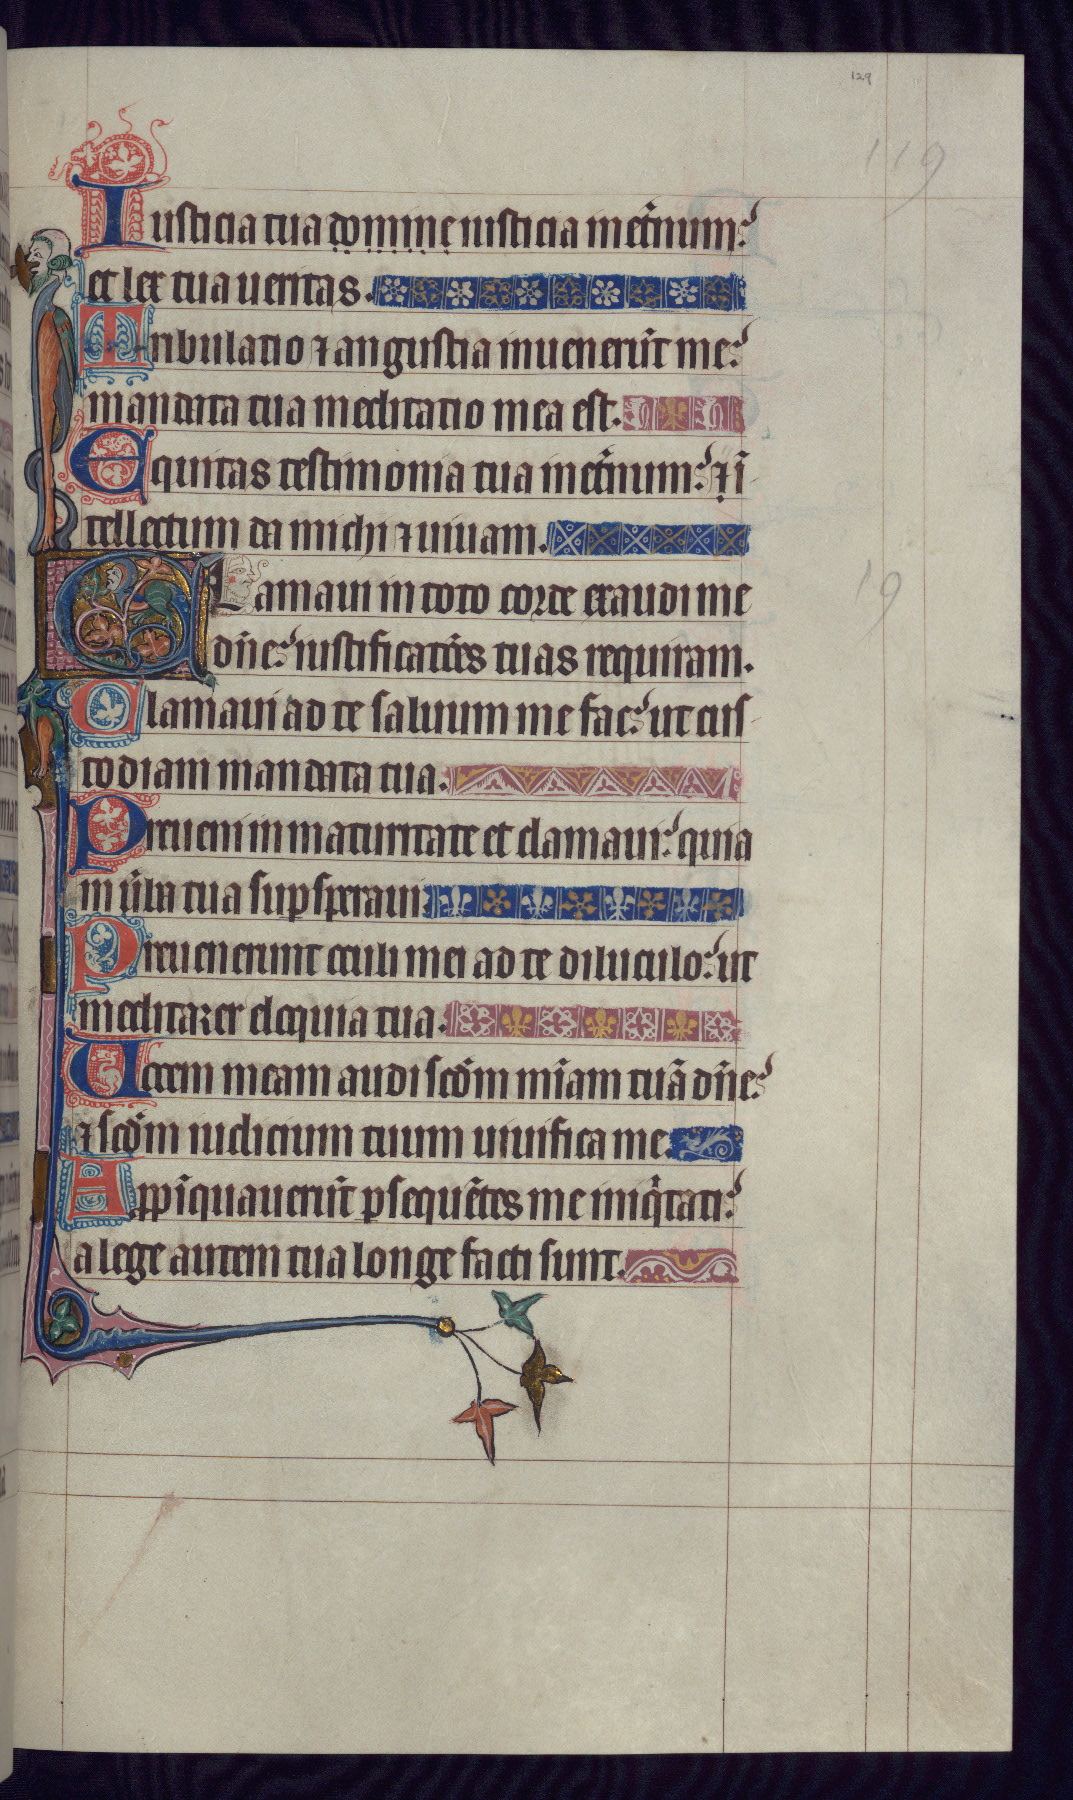 129
119
Iusticia tua domine iusticia in et̄num:
et lex tua ueritas.
Tribulatio ⁊ angustia inuenerūt me:
mandata tua meditatio mea est.
Equitas testimonia tua in et̄num: ⁊ ī-
tellectum da michi ⁊ uiuam.
Clamaui in toto corde exaudi me
dn̄e: iustificatōes tuas requiram.
19
Clamaui ad te saluum me fac: ut cus-
todiam mandata tua.
Preueni in maturitate et clamaui: quia
in ūba tua supsperaui.
Preuenerunt oculi mei ad te diluculo: ut
meditarer eloquia tua.
Uocem meam audi scd̄m mīam tuā dn̄e:
⁊ scd̄m iudicium tuum uiuifica me.
Appīquauerūt psequētes me iniqͥtati:
a lege autem tua longe facti sunt.